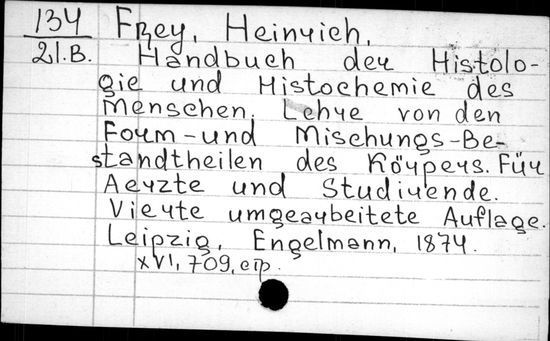 134 Frey, Heinrich.
21.B. Handbuch der Histolo-
gie und Histochemie des
Menschen. Lehre von den
Form-und Mischungs-Be-
standtheilen des Körpers. Für
Aerzte und Studirende.
Vierte umgearbeitete Auflage.
Leipzig, Engelmann, 1874.
XVI, 709, стр.